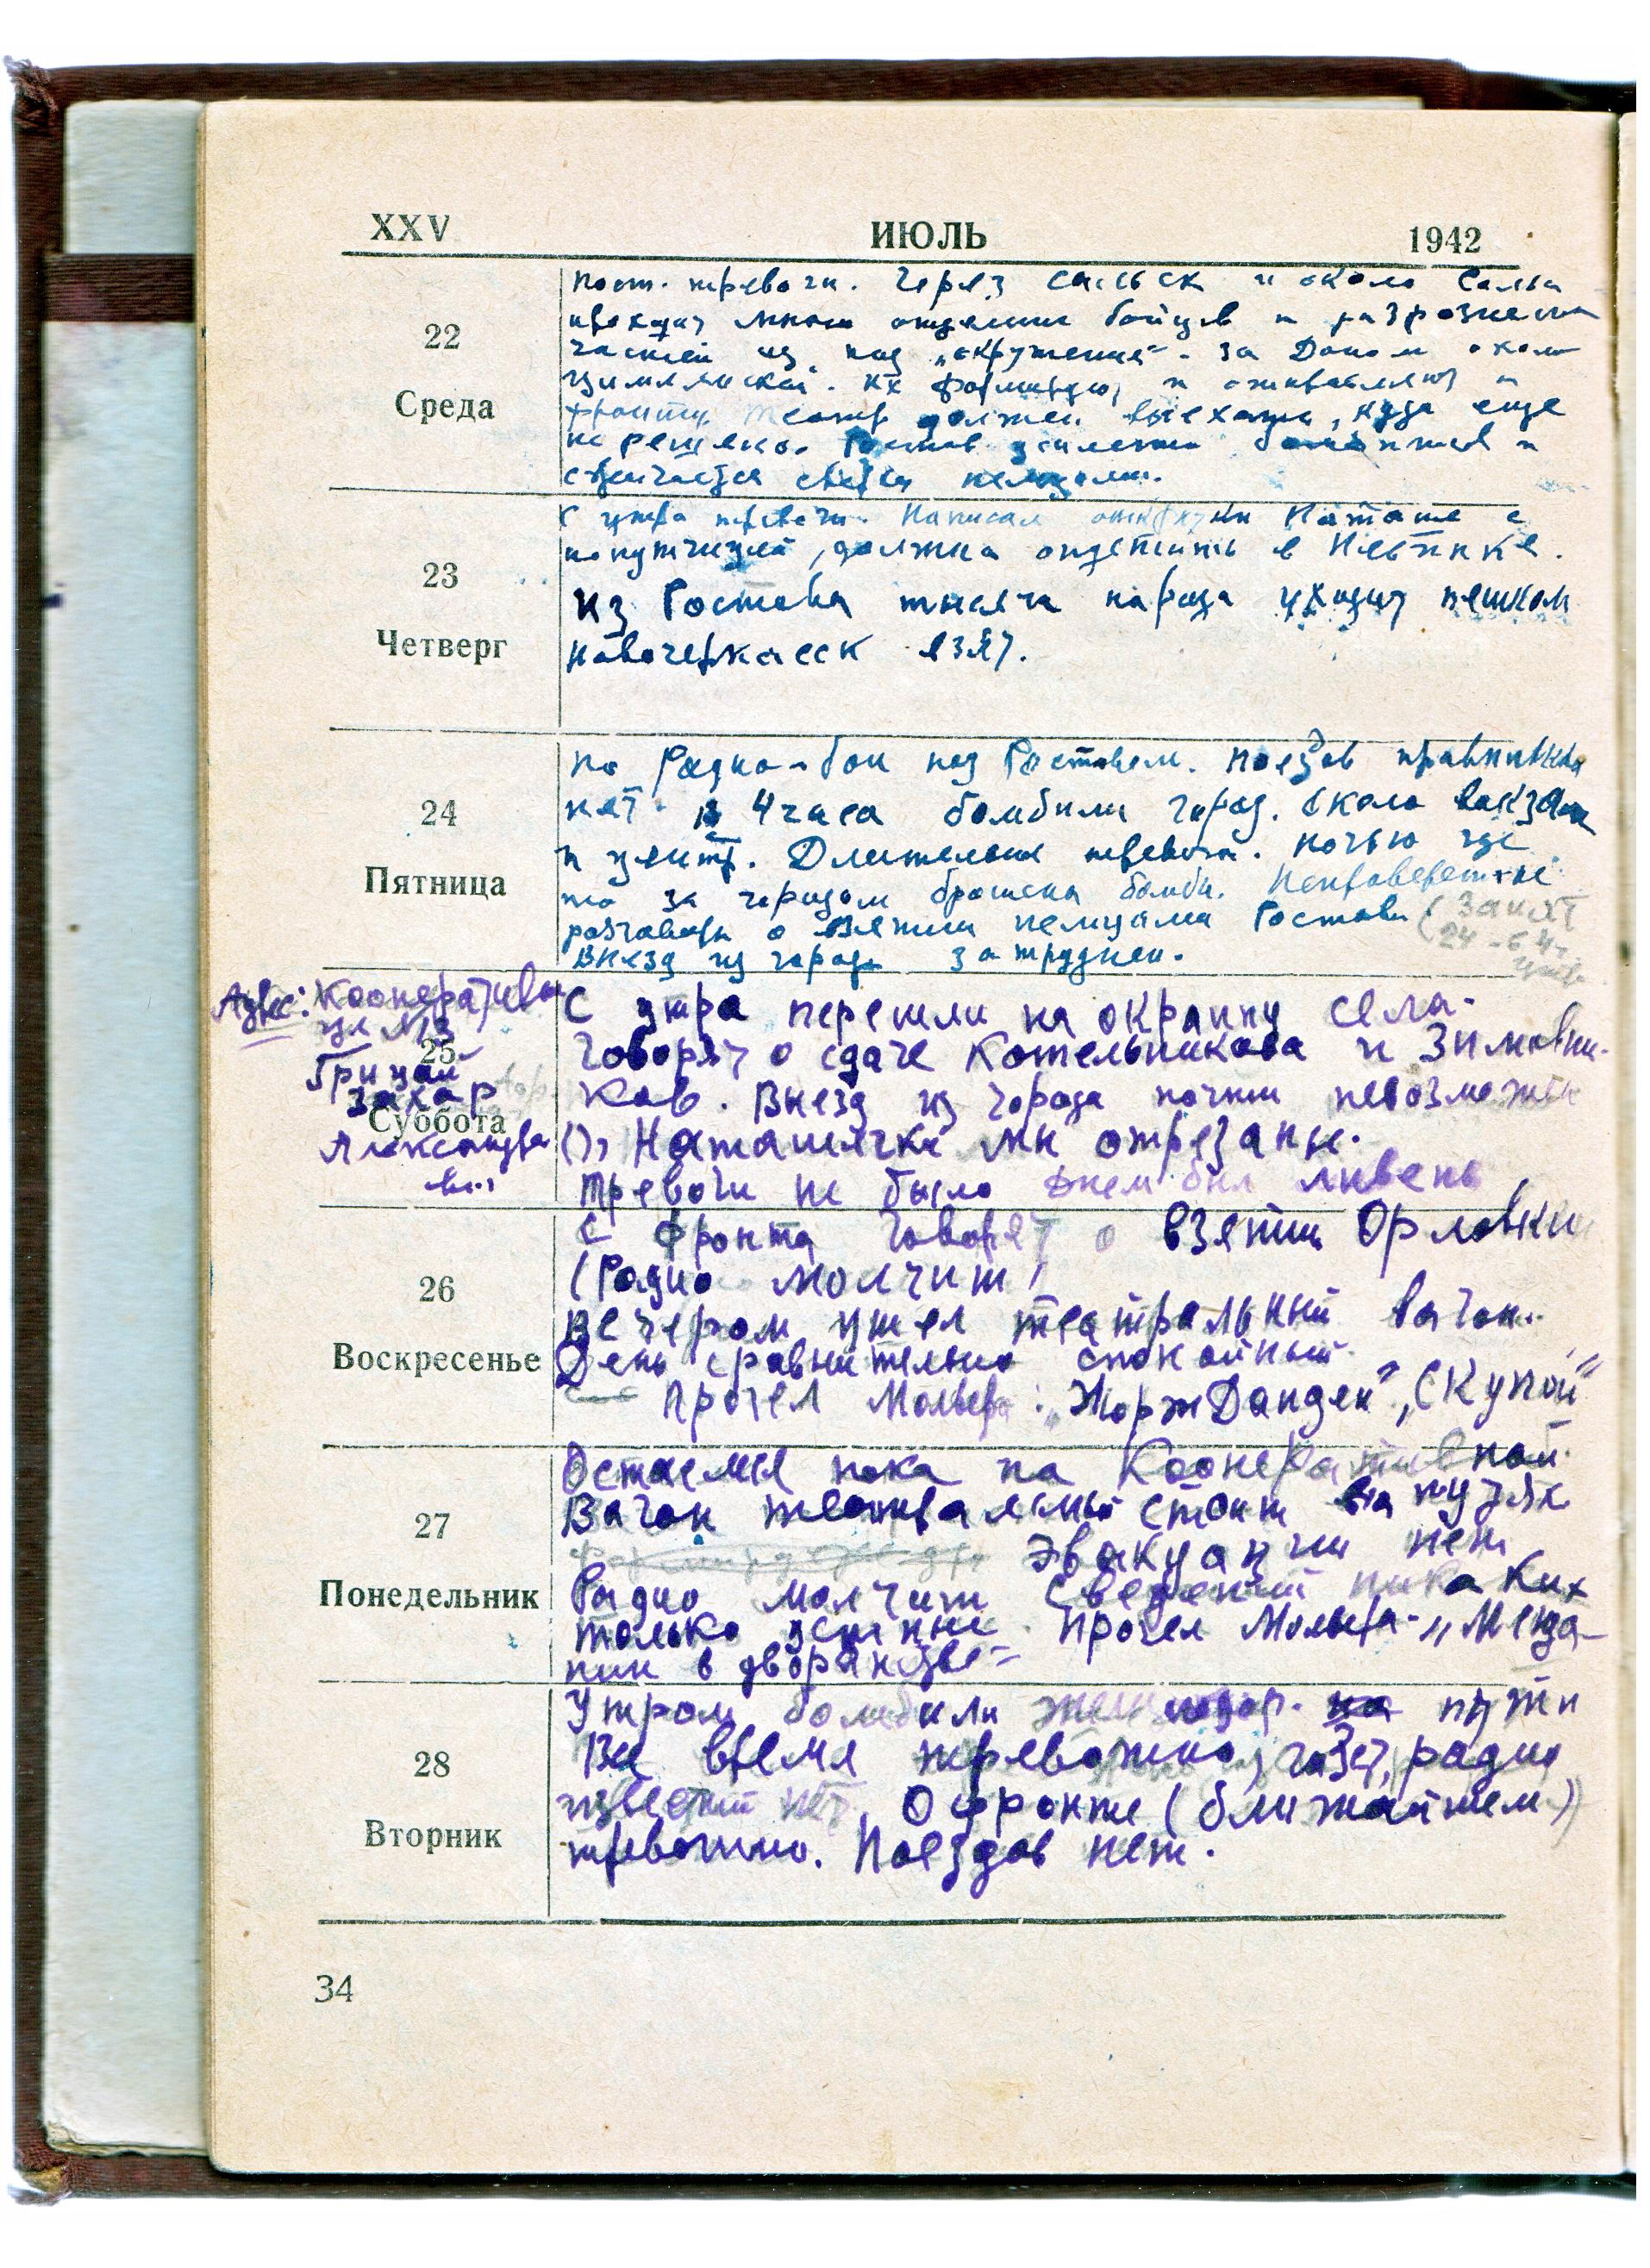 XXV ИЮЛЬ 1942
22
Среда
пост. тревоги. Через Сальск и около Сальска
проходит много отдельных бойцов и разрозненных
частей из под „окружения“ - за Доном около
Цимлянской. Их формируют и отправляют к
фронту. Театр должен выехать, куда еще
не решено. Ростов усиленно
немцами.
23
Четверг
С утра тревоги. Написал открытки Наташе с
попутчицей, должна опустить в
Из Ростова тысяча народа уходит пешком
Новочеркасск взят.
24
Пятница
По Радио - бои под Ростовом. Поездов
нет. в 4 часа бомбили город. Около вокзала
и центр. Длительная тревога. Ночью где
то за городом брошены бомбы. Непроверенные
разговоры о взятии немцами Ростова (занят
24 -
Выезд из города затруднен.
Адрес: Кооперативная
ул №
Грицай
Захар
Александрович
25
Суббота
С утра перешли на окраину села.
Говорят о сдаче Котельникова и Зимовни-
ков. Выезд из города почти невозможен
От Наташечки мы отрезаны.
Тревоги не было Днем был ливень
26
Воскресенье
С фронта говорят о взятии Орловки
(Радио молчит)
Вечером ушел театральный вагон.
День сравнительно спокойный.
Прочел Мольера: „Жорж Данден“, „Скупой“
27
Понедельник
Остаемся пока на Кооперативной.
Вагон театральный стоит на путях
Эвакуации нет
Радио молчит Сведений никаких
только устные. Прочел Мольера - „Меща-
нин в дворянстве“
28
Вторник
Утром бомбили желездор. на пути
Все время тревожно, газет, радио
известий нет. О фронте (ближайшем)
тревожно. Поездов нет.
34